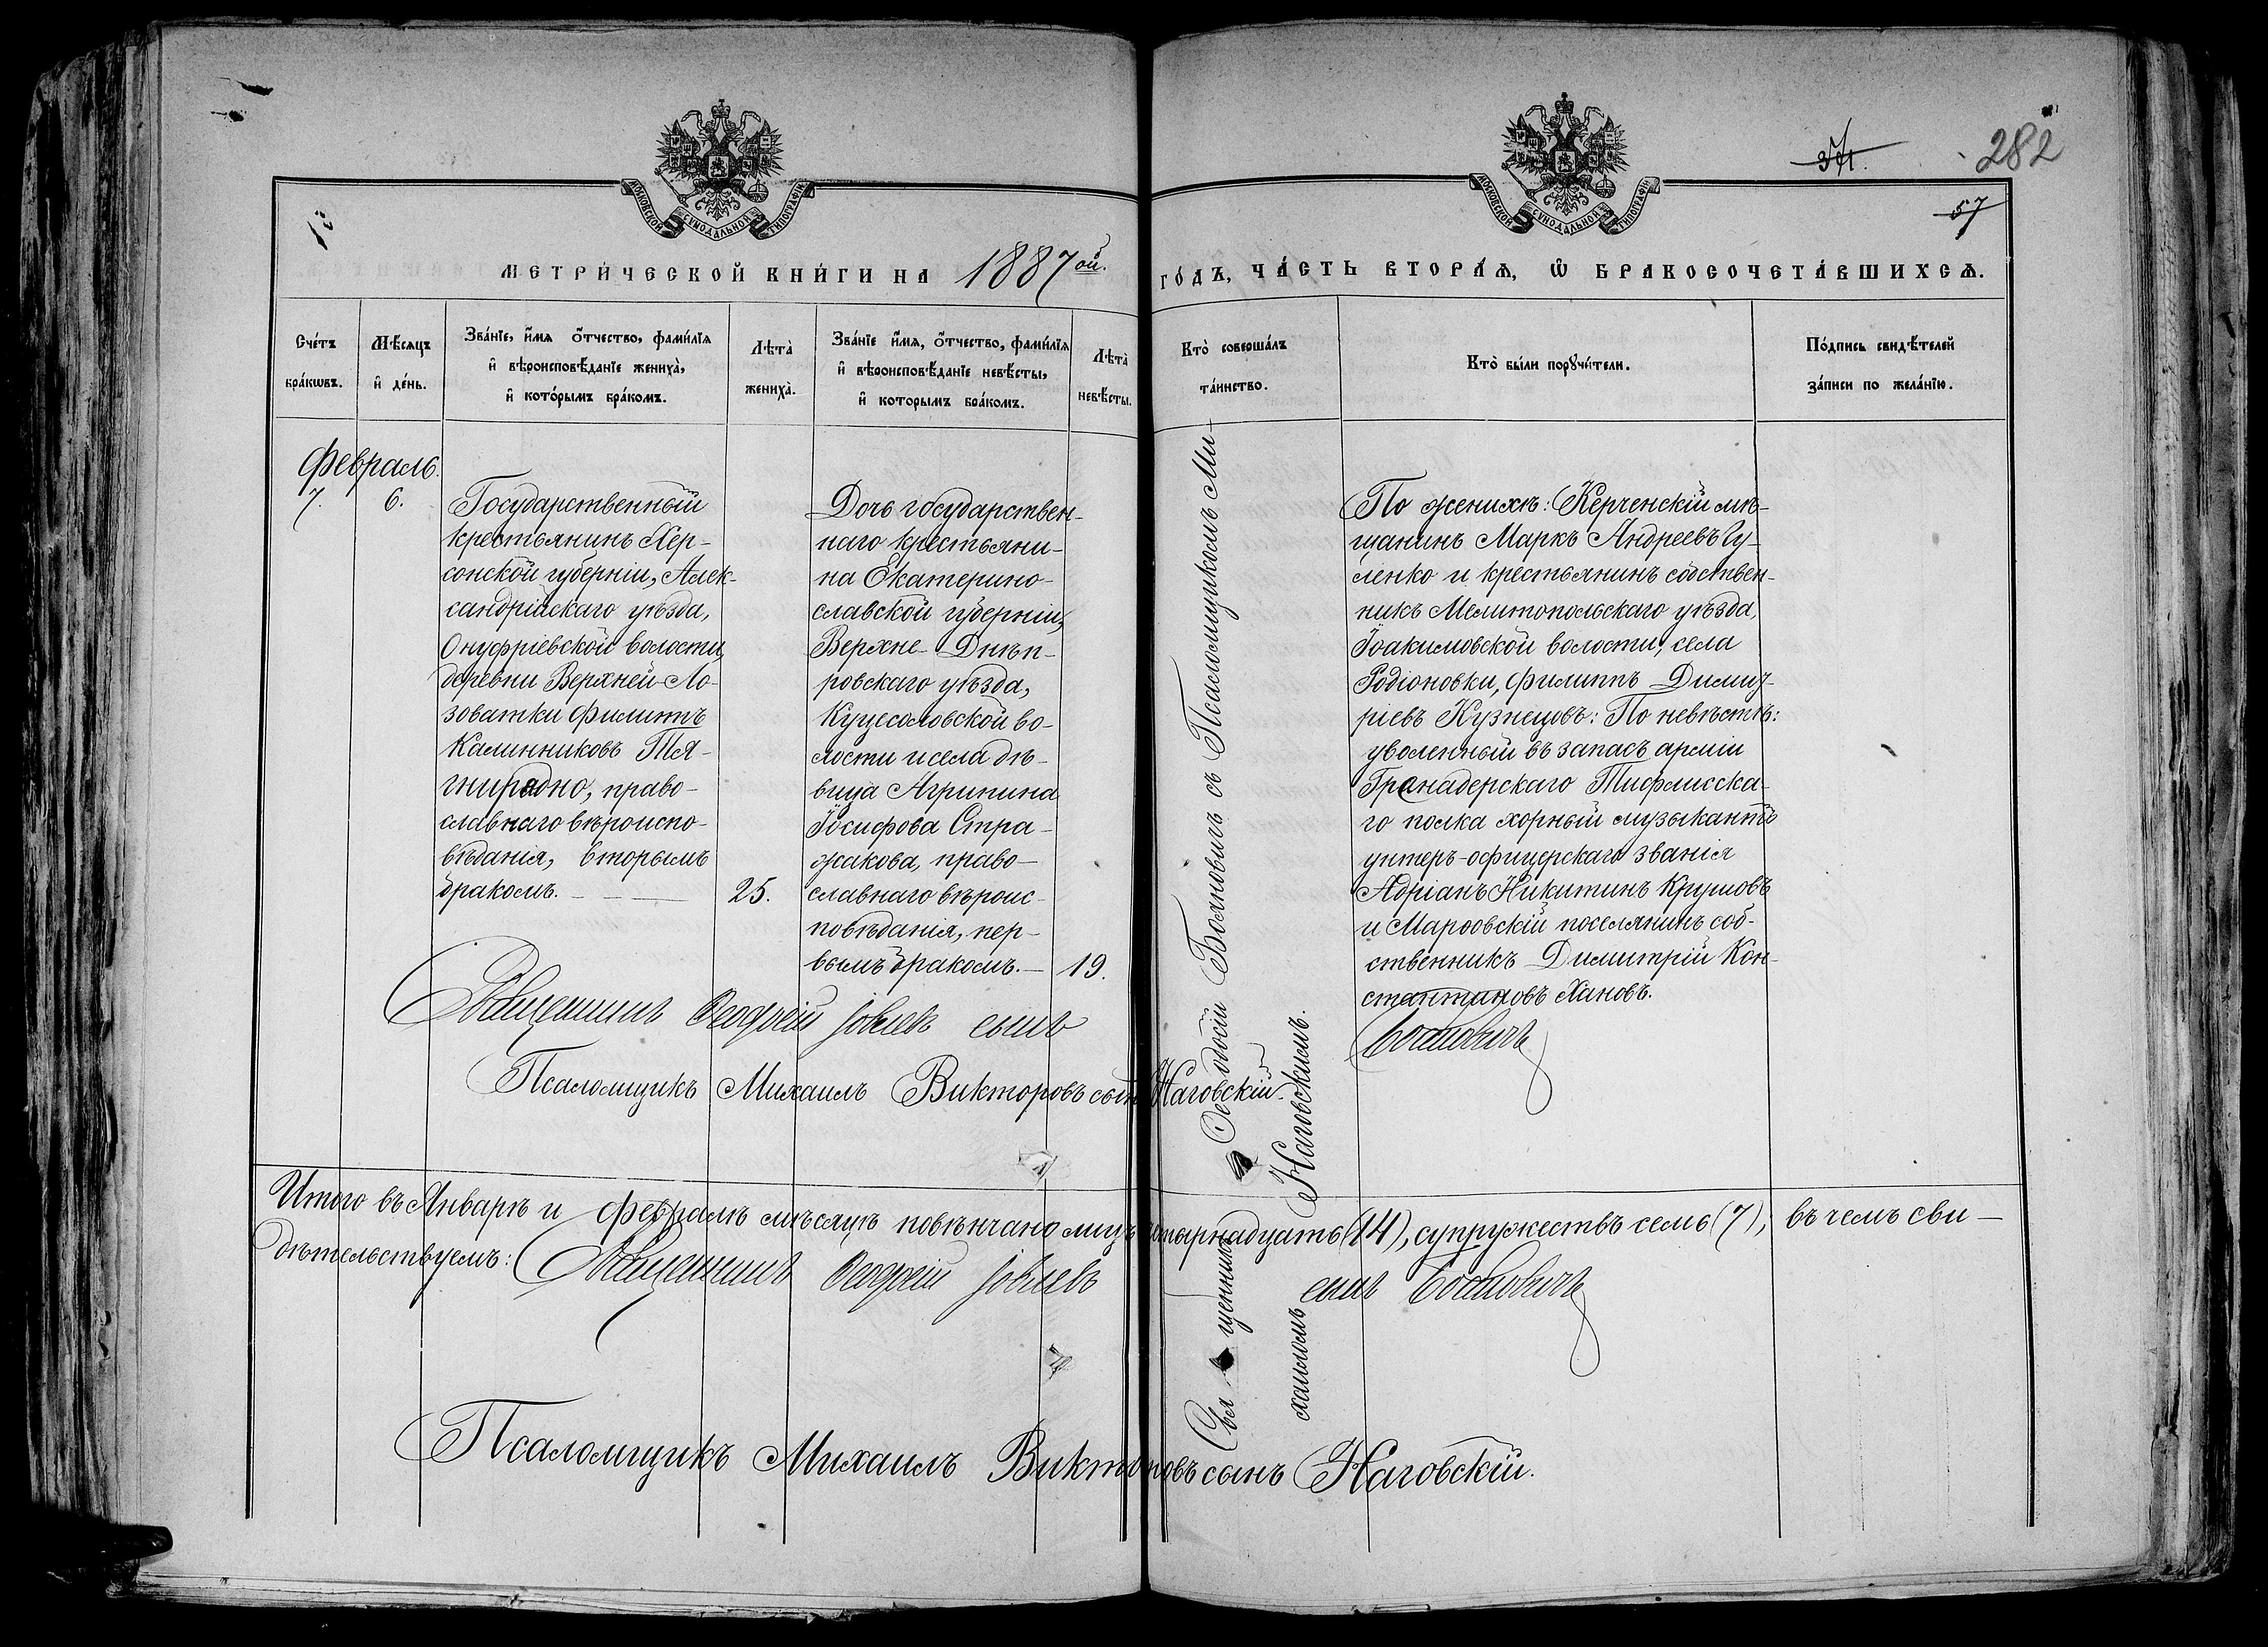 МОСКОВСКОЙ СУНОДАЛЬНОЙ ТИПОГРАФІИ
МОСКОВСКОЙ СУНОДАЛЬНОЙ ТИПОГРАФІИ
371.
282
57
МЕТРИ́ЧЕСКОЙ КНИ́ГИ НА 1887ой.
ГО́ДЪ, ЧА́СТЬ ВТОРА́Ѧ, Ѡ҆ БРАКОСОЧЕТА́ВШИХСѦ.
Сче́тъ
бра́кѡвъ.
Мѣ́сѧцъ
и҆ де́нь.
Зва́нїе, и҆́мѧ о҆́тчество, фами́лїѧ
и҆ вѣроисповѣ́данїе жениха̀,
и҆ кото́рымъ бра́комъ.
Лѣта̀
жениха̀.
Зва́нїе и҆́мѧ, о҆́тчество, фами́лїѧ
и҆ вѣроисповѣ́данїе невѣ́сты,
и҆ которымъ бра́комъ.
Лѣта̀
невѣ́сты.
Кто̀ соверша́лъ
та́инство.
Кто̀ бы́ли порꙋчи́тели.
По́дпись свидѣ́телей
за́писи по жела́нїю.
Февраль.
7. 6.
Государственный
крестьянинъ Хер-
сонской губерніи, Алек-
сандрійскаго уѣзда,
Онуфріевской волости,
деревни Верхней-Ло-
зоватки Филиппъ
Калинниковъ Тя-
гнирядно, право-
славнаго вѣроиспо-
вѣданія, вторымъ
бракомъ.
25.
Дочь государствен-
наго крестьяни-
на Екатерино-
славской губерніи,
Верхне-Днѣп-
ровскаго уѣзда,
Куцесоловской во-
лости и села дѣ-
вица Агрипина
Іосифова Стра-
жакова, право-
славнаго вѣроис-
повѣданія, пер-
вымъ бракомъ.
19.
Священникомъ Ѳеодосій Бояновимъ съ Псаломщикомъ Ми-
хаиломъ Наговскимъ.
По женихѣ: Керченскій мѣ-
щанинъ Маркъ Андреевъ Гу-
ленко и крестьянинъ собствен-
никъ Мелитопольскаго уѣзда,
Іоакимовской волости, села
Родіоновки, Филиппъ Димит-
ріевъ Кузнецовъ: По невѣстѣ:
уволенный въ запасъ арміи
Гренадерскаго Тифлисска-
го полка хорный музыкантъ
унтеръ-офицерскаго званія
Адріанъ Никитинъ Крушовъ
и Марфовскій поселянинъ соб-
ственникъ Димитрій Кон-
стантиновъ Хановъ.
Священникъ Ѳеодосій Іовлевъ сынъ
Псаломщикъ Михаилъ Викторовъ сынъ Наговскій.
Итого въ Январѣ и Февралѣ мѣсяцѣ повѣнчано лицъ четырнадцать (14), супружествъ семь (7), въ чемъ сви-
дѣтельствуемъ: Священникъ Ѳеодосій Іовлевъ сынъ
Псаломщикъ Михаилъ Викторовъ сынъ Наговскій.